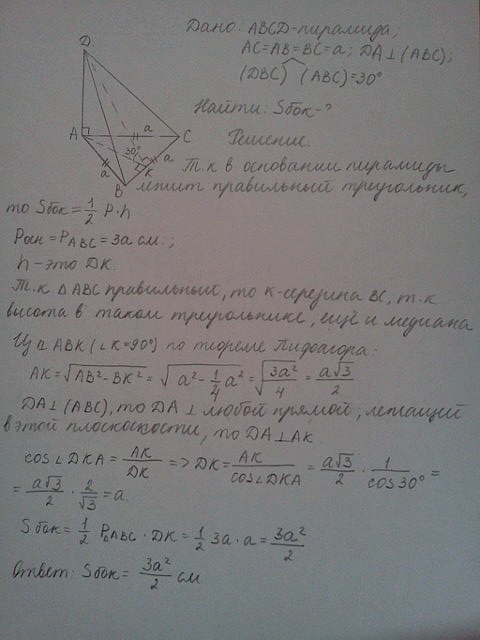 Дано: ABCD-пирамида;
AC=AB=BC=a; DA⊥(ABC);
(DBC) (ABC)=30°
Найти: Sбок-?
Решение.
Т.к в основании пирамиды
лежит правильный треугольник,
то Sбок=1/2 P·h
Pосн=P ABC=3a см.;
h-это DK.
Т.к △ABC правильный, то K-середина BC, т.к
высота в таком треугольнике, ещё и медиана
Из △ ABK (∠K=90°) по теореме Пифагора:
AK=√(AB²-BK²)=√(a²-1/4a²)=√(3a²/4)=a√3/2
DA⊥(ABC), то DA⊥ любой прямой, лежащей
в этой плоскости, то DA⊥AK
cos∠DKA=AK/DK => DK=AK/cos∠DKA=a√3/2·1/cos30°=
=a√3/2·2/√3=a
Sбок=1/2 P△ABC·DK=1/2 3a·a=3a²/2
Ответ: Sбок=3a²/2 см
D
A
a
C
30°
a
K
a
B